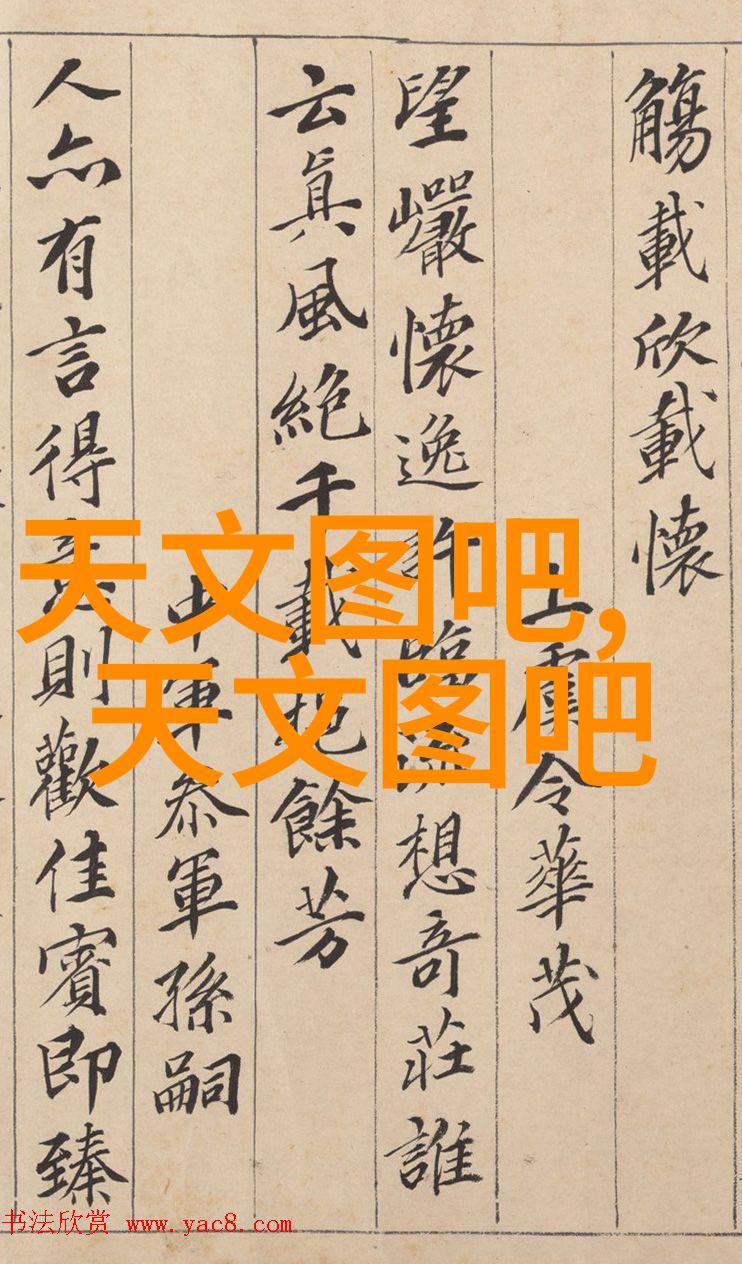 觴載欣載懷
上虞令華茂
望巖懷逸許臨流想奇莊誰
云眞風絶千載挹餘芳
中軍叅軍孫嗣
人亦有言得意則歡佳賓即臻
天文图吧,
天文图吧
书法欣赏 www.yac8.com